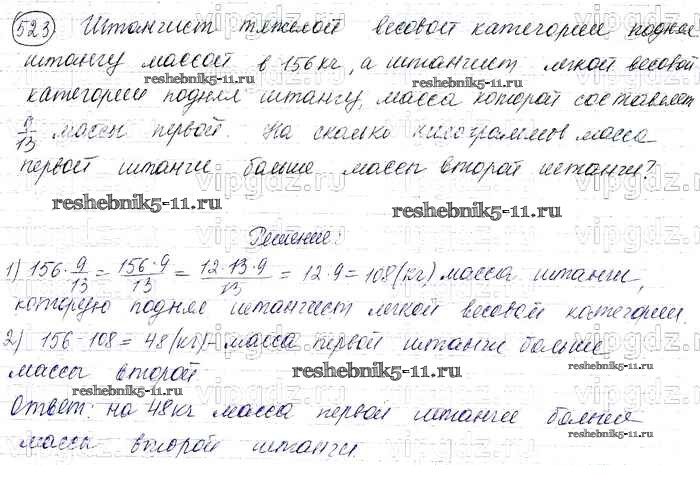 523 Штангист тяжелой весовой категории поднял
штангу массой в 156 кг, а штангист легкой весовой
reshebnik5-11.ru reshebnik5-11.ru
категории поднял штангу, масса которой составляет
9/13 массы первой. На сколько килограммов масса
первой штанги больше массы второй штанги?
reshebnik5-11.ru reshebnik5-11.ru
Решение:
1) 156·9/13 = 156·9/13 = 12·13·9/13 = 12·9 = 108 (кг) масса штанги,
которую поднял штангист легкой весовой категории.
2) 156-108 = 48 (кг)- масса первой штанги больше
массы второй
reshebnik5-11.ru reshebnik5-11.ru
Ответ: на 48 кг масса первой штанги больше
массы второй штанги.
reshebnik5-11.ru reshebnik5-11.ru